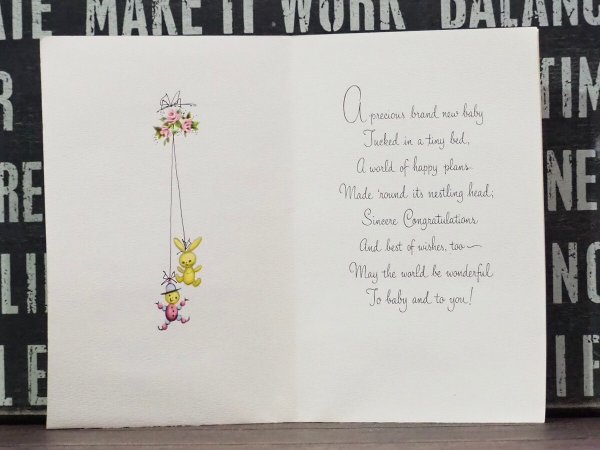 ATE MAKE IT WORK BALANC
A precious brand new baby
Tucked in a tiny bed,
A world of happy plans
Made 'round its nestling head;
Sincere Congratulations
And best of wishes, too—
May the world be wonderful
To baby and to you!
R
TIM
RE
NE
LI
NG
LE
IF